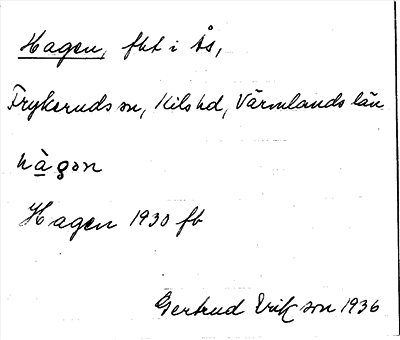 Hagen, fbt i Ås,
Frykeruds sn, Kils hd, Värmlands län
hàgən
Hagen 1930 fb
Gertrud Erikson 1936